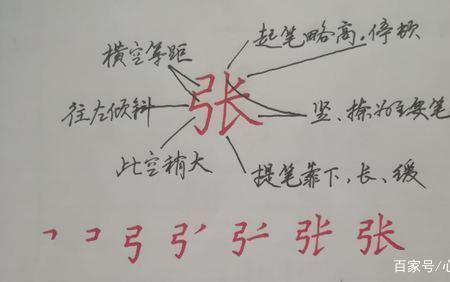 起笔略高,停顿
横空等距
张
往左倾斜
竖、捺为主要笔
此空稍大
提笔靠下,长、缓
张 张
百家号/心